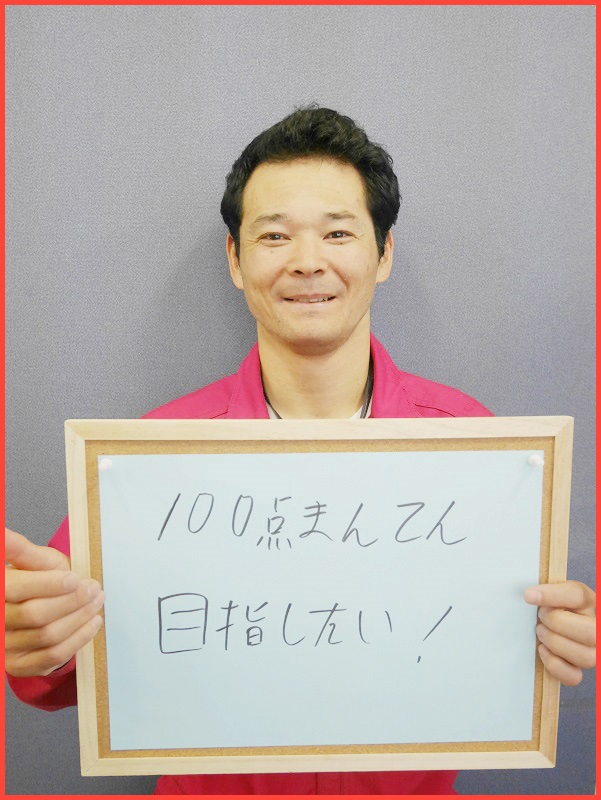 100点まんてん
目指したい!